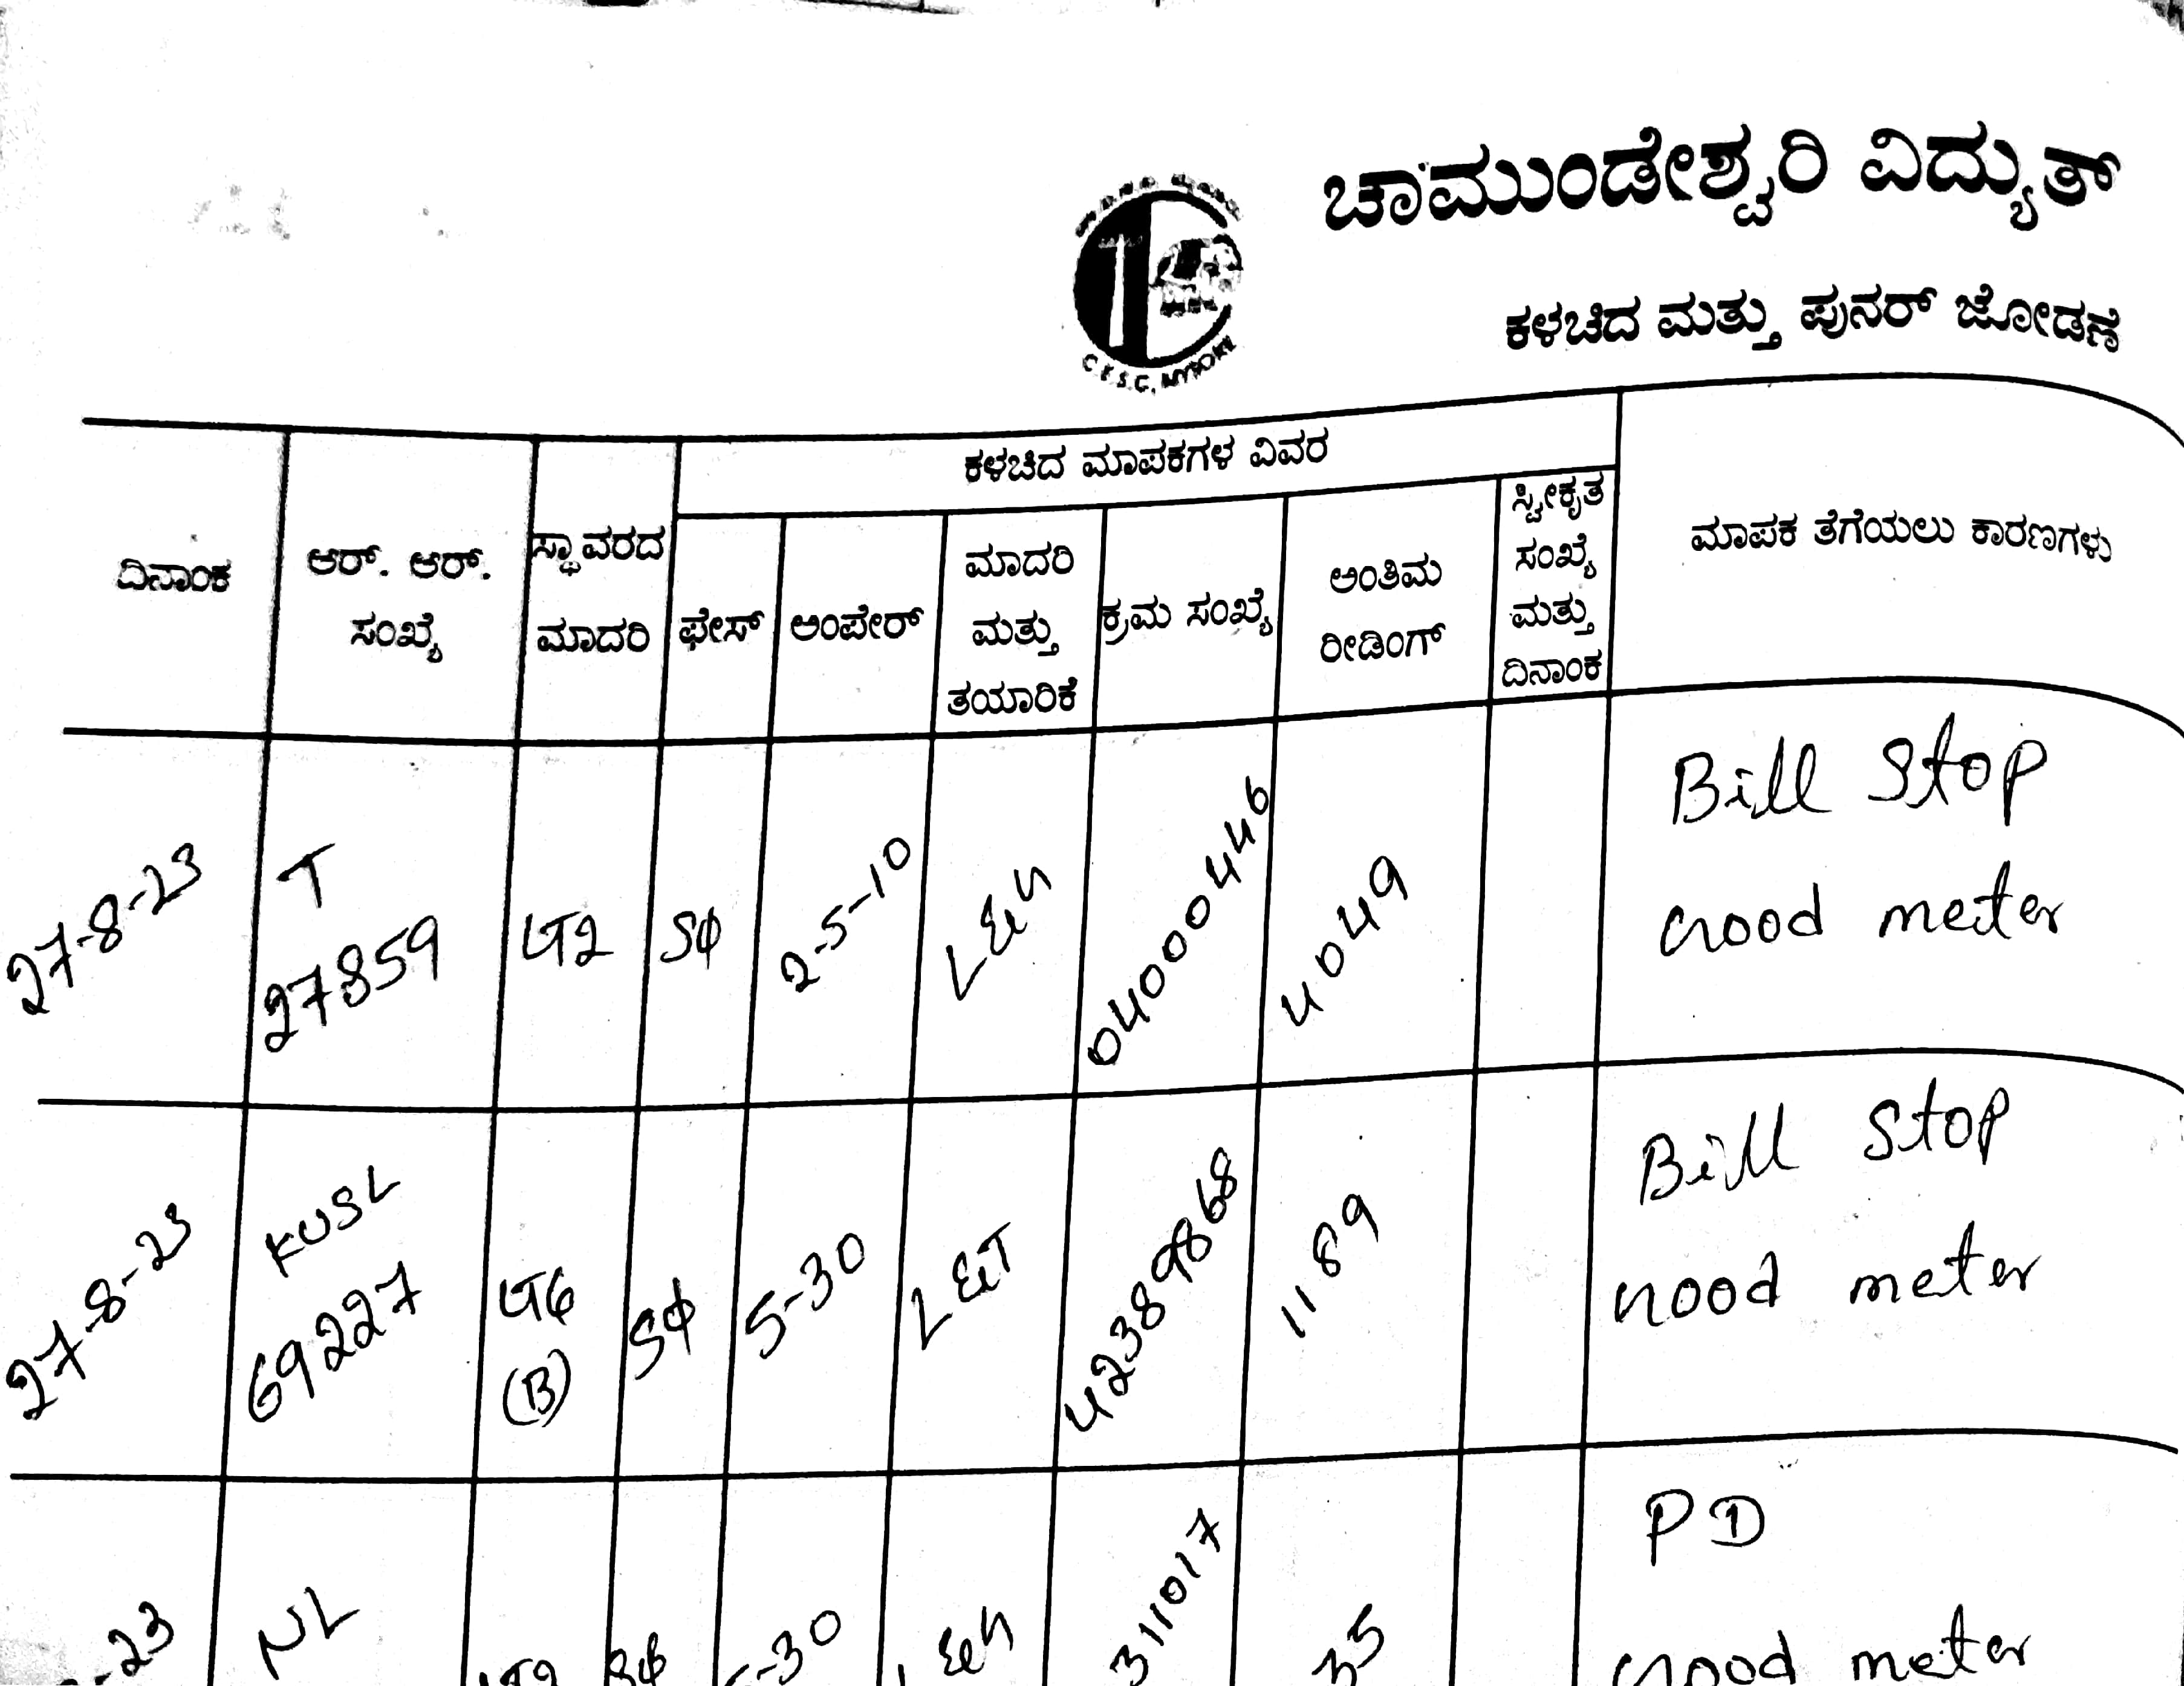 ಚಾಮುಂಡೇಶ್ವರಿ ವಿದ್ಯುತ್
ಕಳಚಿದ ಮತ್ತು ಪುನರ್ ಜೋಡಣೆ
C.E.S.C. MYSORE
ಕಳಚಿದ ಮಾಪಕಗಳ ವಿವರ
ದಿನಾಂಕ
ಆರ್. ಆರ್.
ಸಂಖ್ಯೆ
ಸ್ಥಾವರದ
ಮಾದರಿ
ಫೇಸ್
ಅಂಪೇರ್
ಮಾದರಿ
ಮತ್ತು
ತಯಾರಿಕೆ
ಕ್ರಮ ಸಂಖ್ಯೆ
ಅಂತಿಮ
ರೀಡಿಂಗ್
ಸ್ವೀಕೃತ
ಸಂಖ್ಯೆ
ಮತ್ತು
ದಿನಾಂಕ
ಮಾಪಕ ತೆಗೆಯಲು ಕಾರಣಗಳು
27-8-23
T
27859
LT2
Sφ
2-5-10
L&G
040000446
4049
Bill Stop
Good meter
27-8-23
KUSL
69227
LT6
(B)
Sφ
5-30
L&T
1189
Bill Stop
Good meter
23
NL
Sφ
-30
L&G
311017
35
PD
Good meter